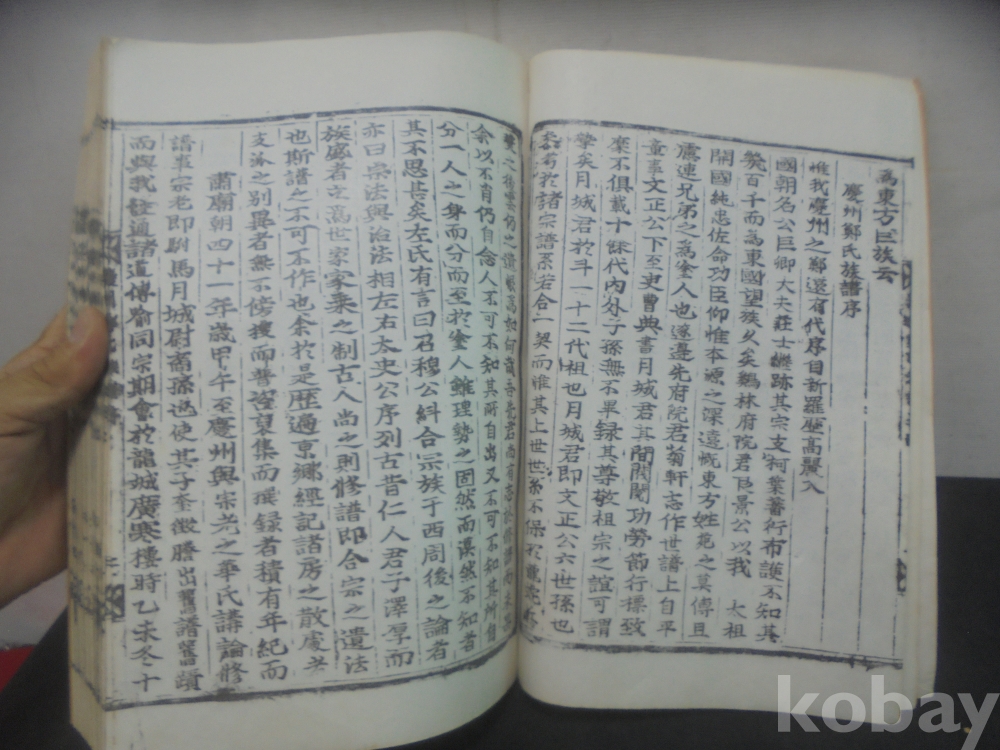 為東方巨族云
慶州鄭氏族譜序
惟我慶州之鄭遠有代序自新羅歷高麗入
國朝名公巨卿大夫莊士縱跡其宗支柯葉蕃衍布護不知其
幾百千而為東國望族久矣鷄林府院君臣景公以我 太祖
開國純忠佐命功臣仰惟本源之深遠慨東方姓苑之莫傳且
慮連兄弟之為塗人也遂邊先府院君菊軒志作世譜上自平
章事文正公下至吏曹典書月城君其間閥閱功勞節行標致
靡不俱載十餘代內外子孫無不畢録其尊敬祖宗之誼可謂
摯矣月城君於斗一十二代祖也月城君即文正公六世孫也
於諸宗譜系若合一契而惟其上世世系不保
余以不肖仍自念人不可不知其所自出又不可不知其所自
分一人之身而分而至於塗人雖理勢之固然而漠然不知者
其不思甚矣左氏有言曰召穆公糾合宗族于西周後之論者
亦曰宗法與治法相左右太史公序列古昔仁人君子澤厚而
族盛者之為世家家乘之制古人尚之則修譜即合宗之遺法
也斯譜之不可不作也余於是歷過京鄉經記諸房之散處為
支派之別異者無不傍搜而普咨裒集而選録者積有年紀而
肅廟朝四十一年歲甲午至慶州與宗老之華氏講論修
譜事宗老即駙馬月城尉裔孫也使其子奎徵謄出舊譜舊蹟
而與我發通諸道傳喻同宗期會於龍城廣寒樓時乙未冬十